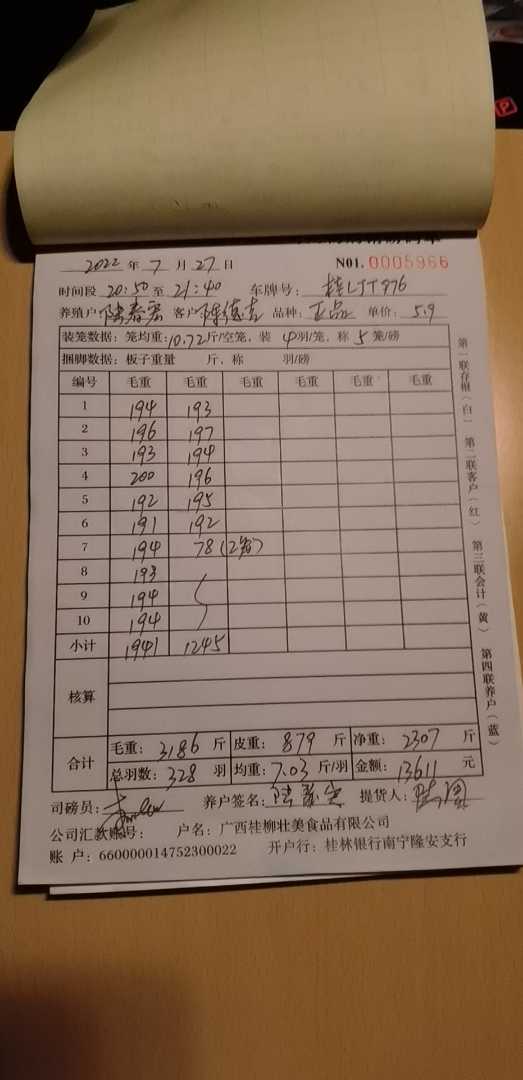 2022 年 7 月 27 日 NO1. 0005966
时间段 20:50 至 21:40 车牌号: 桂LJT976
养殖户 陆春宏 客户 陈德吉 品种: 正品 单价: 5.9
装笼数据: 笼均重: 10.72 斤/空笼, 装 4 羽/笼, 称 5 笼/磅
捆脚数据: 板子重量 斤, 称 羽/磅
编号 毛重 毛重 毛重 毛重 毛重 毛重
1 194 193
2 196 197
3 193 194
4 200 196
5 192 195
6 191 192
7 194 78 (2笼)
8 193
9 194
10 194
小计 1941 1245
核算
合计 毛重: 3186 斤 皮重: 879 斤 净重: 2307 斤
总羽数: 328 羽 均重: 7.03 斤/羽 金额: 13611 元
司磅员: 养户签名: 提货人:
公司汇款账号: 户名: 广西桂柳壮美食品有限公司
账 户: 660000014752300022 开户行: 桂林银行南宁隆安支行
第一联存根(白) 第二联客户(红) 第三联会计(黄) 第四联养户(蓝)
P